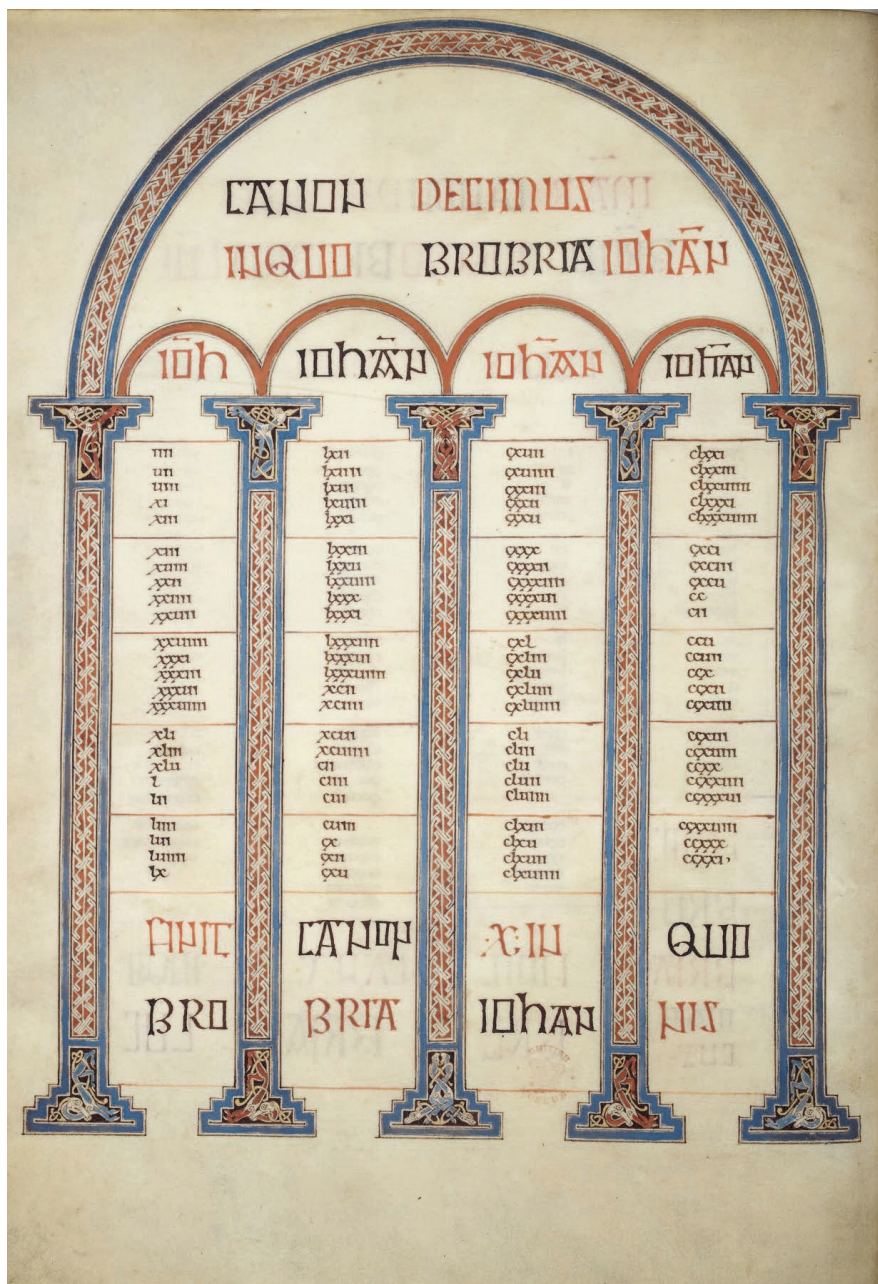 CANON DECIMUS
INQUO BROBRIA IOHAN̄
IŌH
IOHĀN
IOHĀN
IOHAN
iiii
uii
uiiii
xi
xiii
xui
xuiii
xxii
xxiiii
xxuii
xxuiiii
xxxi
xxxiii
xxxui
xxxuiiii
xli
xliii
xlu
l
lii
liiii
lui
luiii
lx
lxii
lxiiii
lxui
lxuiii
lxxi
lxxiii
lxxu
lxxuiii
lxxx
lxxxi
lxxxiiii
lxxxui
lxxxuiiii
xcii
xciiii
xcuii
xcuiiii
cii
ciiii
cui
cuiii
cx
cxii
cxu
cxuii
cxuiiii
cxxiii
cxxu
cxxx
cxxxii
cxxxiiii
cxxxui
cxxxuiiii
cxl
cxliii
cxlu
cxluii
cxluiiii
cli
cliii
clu
cluii
cluiiii
clxiii
clxu
clxuii
clxuiiii
clxxi
clxxiii
clxxuiiii
clxxxi
clxxxuiiii
cxci
cxciii
cxcu
cc
cii
ccu
ccuii
ccx
ccxii
ccxiiii
ccxui
ccxuiii
ccxx
ccxxiiii
ccxxui
ccxxuiiii
ccxxx
ccxxxi
FINIT CANON X IN QUO
BRO BRIA IOHAN NIS